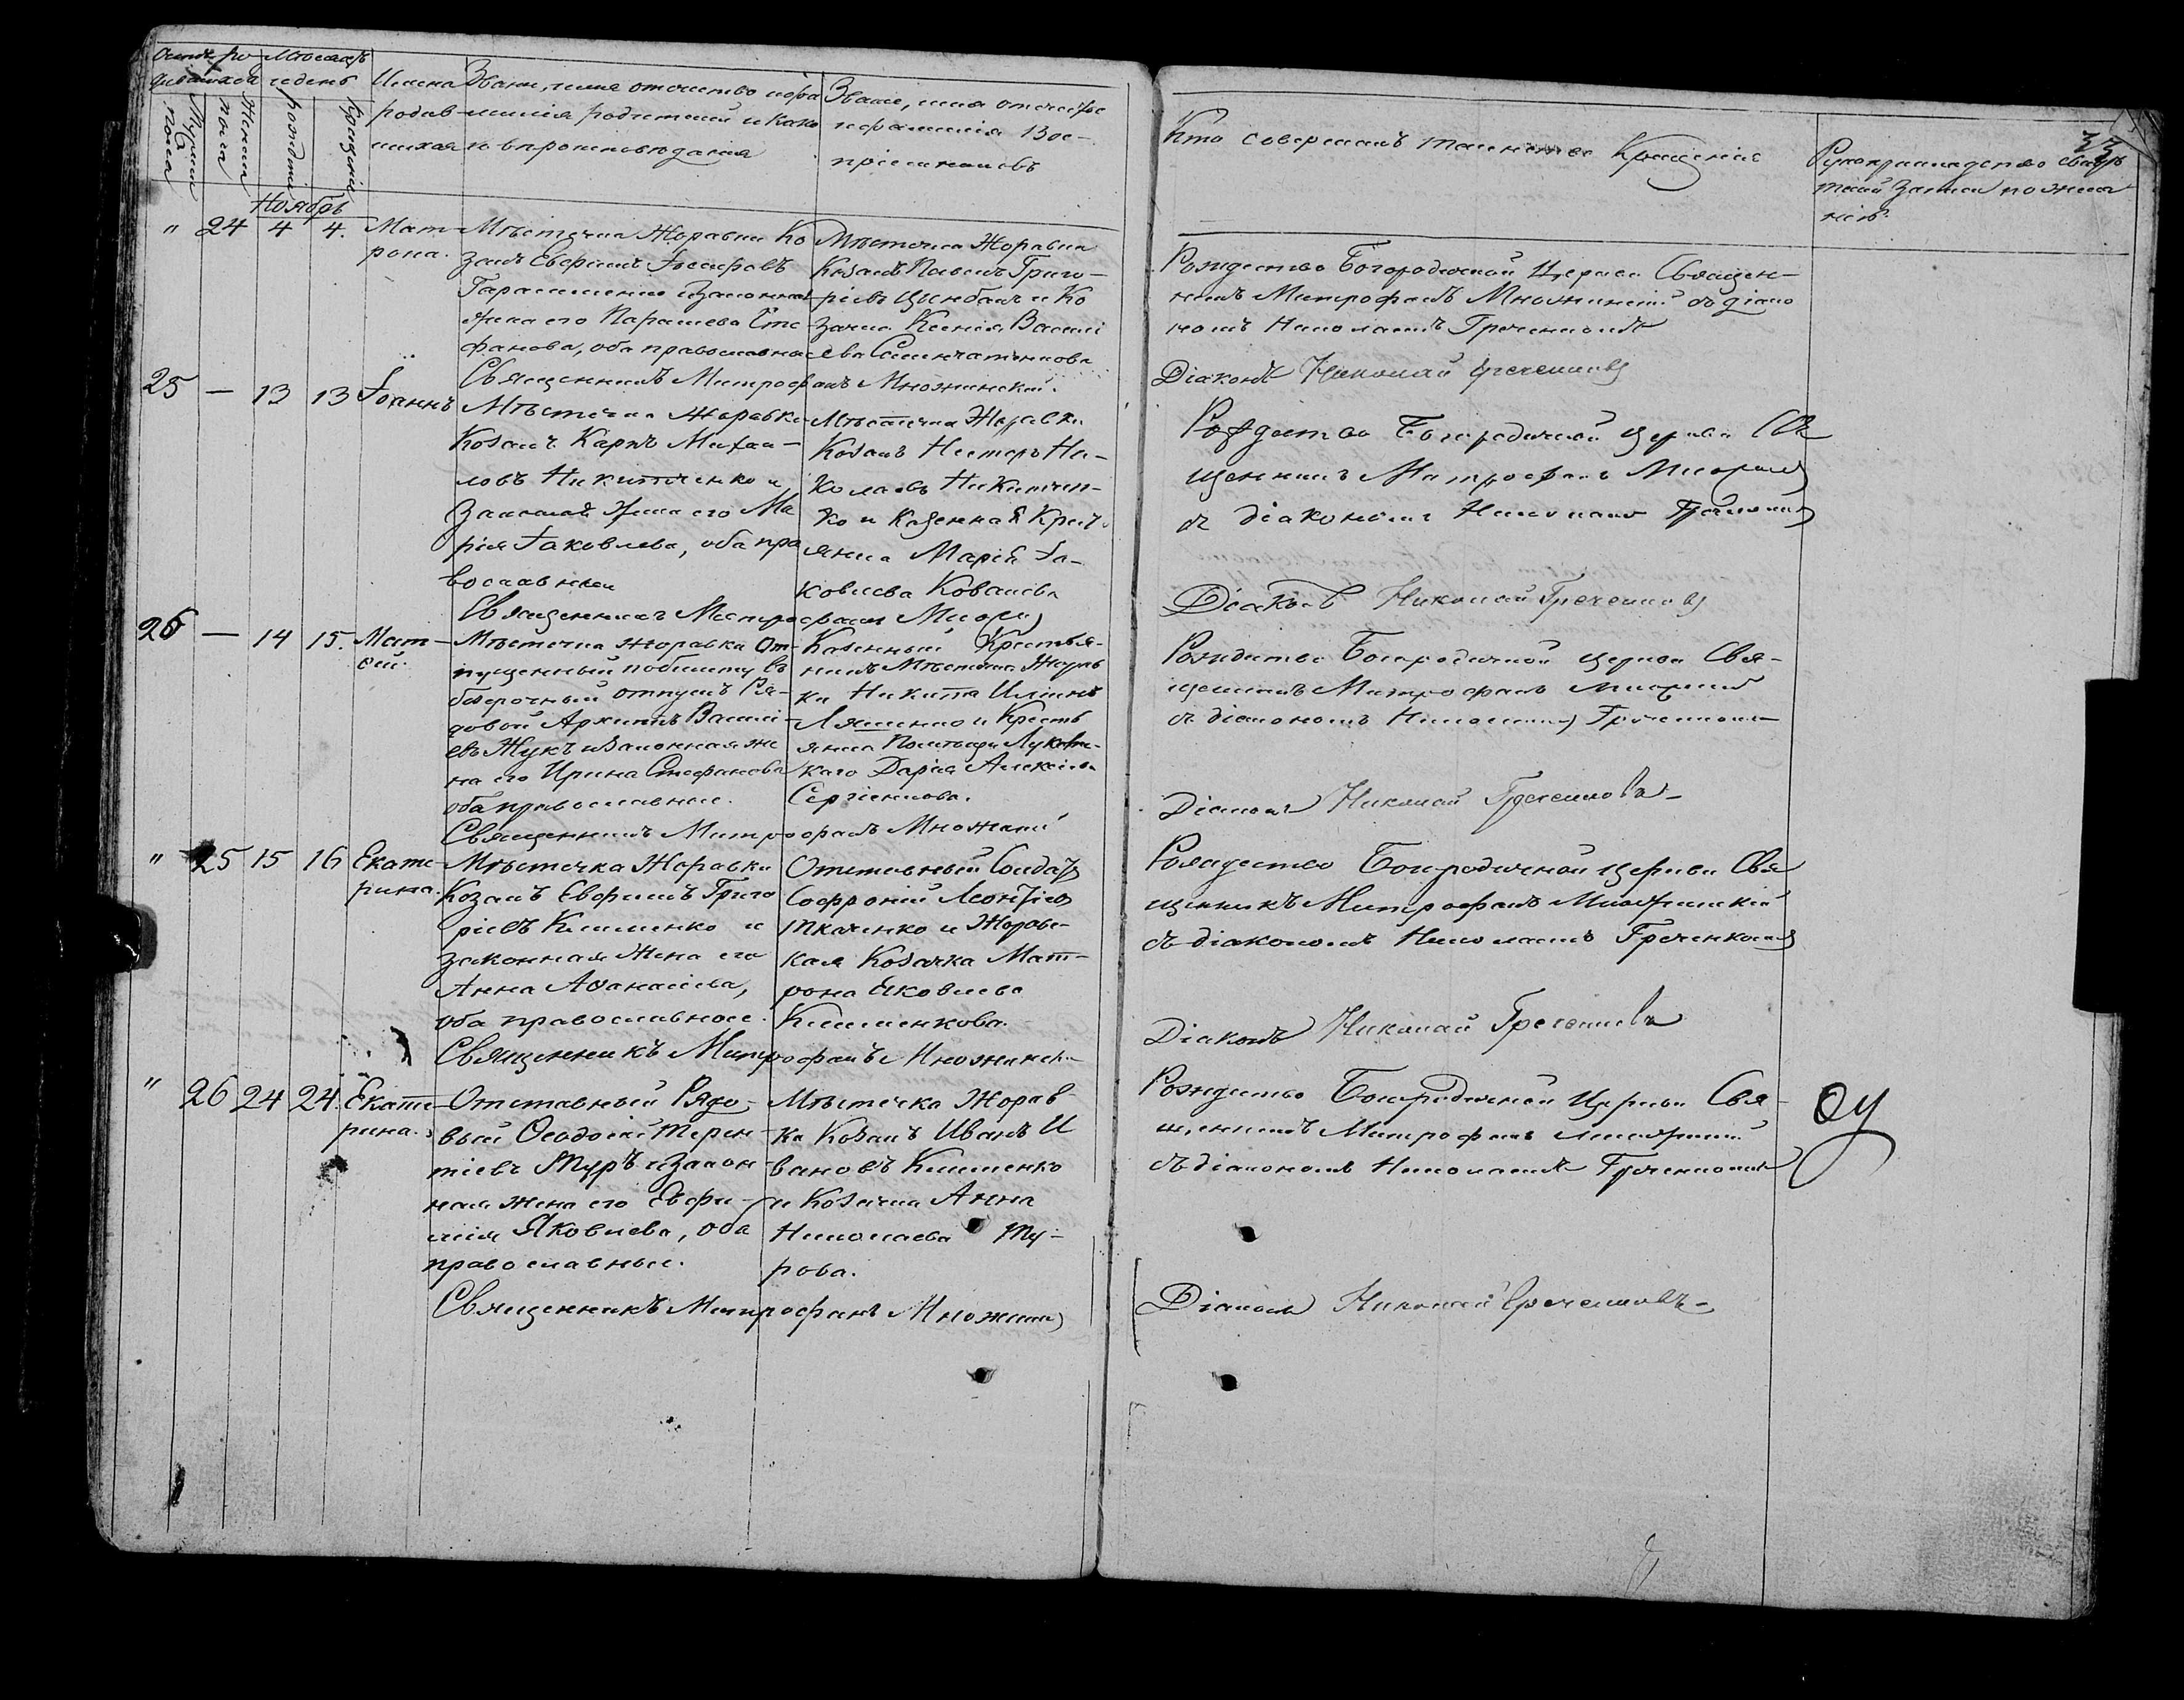 Мѣсяцъ
и день
Имена
родив-
шихся
Званіе, имя отчество и фа
милія родителей и како
го вѣроисповѣданія
Званіе, имя отчество
и фамилія Вос-
пріемниковъ
Мужеска пола
Женска пола
рожденія
крещенія
Ноябрь
" 24 4 4.
Мат-
рона.
Мѣстечка Жоравки Ко
закъ Евфимъ Іосифовъ
Герасименко и законная
жена его Параскева Сте
фанова, оба православные
Священникъ Митрофанъ Множинскій.
Мѣстечка Жоравки
Козакъ Павелъ Григо-
ріевъ Цимбалъ и Ко
зачка Ксенія Василі
ева
25 — 13 13
Іоаннъ
Мѣстечка Жоравки
Козакъ Карпъ Михаи-
ловъ Никитченко и
Законная Жена его Ма
рія Іаковлева, оба пра
вославные
Священникъ Митрофанъ
Мѣстечка Жоравки
Козакъ Несторъ Ни-
колаевъ Никитчен-
ко и Казенная Крест
янка Марія Іа-
ковлева Ковалева
26 — 14 15.
Мат-
ѳей.
Мѣстечка Жоравка От-
пущенный по билету въ
безсрочный отпускъ Ря-
довой Архипъ Василі-
евъ Жукъ и Законная же
на его Ирина Стефанова
оба православные.
Священникъ Митрофанъ Множинскій
Казенный Крестья-
нинъ Мѣстечка Жорав
ки Никита Илѣинъ
Ляшенко и Кресть
янка Помѣщика
Дарія Алексѣева
Сергіенкова.
" 25 15 16
Екате-
рина.
Мѣстечка Жоравки
Козакъ Евфимъ Григо
ріевъ Клименко и
законная Жена его
Анна Аѳанасіева,
оба православные.
Священникъ Митрофанъ Множинскій
Отставный Солдатъ
Софроній Леонтіевъ
Ткаченко и Жорав-
кая Козачка Мат-
рона Яковлева
Клименкова.
" 26 24 24.
Екате-
рина.
Отставный Рядо-
вый Ѳеодосій Терен-
тіевъ Туръ и Закон
ная жена его Евфи-
мія Яковлева, оба
православные.
Священникъ Митрофанъ Множинскій
Мѣстечка Жорав-
ки Козакъ Иванъ И
вановъ Клименко
и Козачка Анна
Николаева Ту-
рова.
33
Кто совершалъ таинство Крещенія
Рукоприкладство свидѣ
телей записи по жела
нію.
Рождество Богородичной Церкви Священ-
никъ Митрофанъ Множинскій съ діако
номъ Николаемъ Греченковымъ
Діаконъ Николай Греченковъ
Рождество Богородичной Церкви Свя
щенникъ Митрофанъ Множинскій
съ діакономъ Николаемъ Греченковымъ
Діаконъ Николай Греченковъ
Рождество Богородичной Церкви Свя-
щенникъ Митрофанъ Множинскій
съ діакономъ Николаемъ Греченковымъ
Діаконъ Николай Греченковъ
Рождество Богородичной Церкви Свя
щенникъ Митрофанъ Множинскій
съ діакономъ Николаемъ Греченковымъ
Діаконъ Николай Греченковъ
Рождество Богородичной Церкви Свя-
щенникъ Митрофанъ Множинскій
съ діакономъ Николаемъ Греченковымъ
Діаконъ Николай Греченковъ